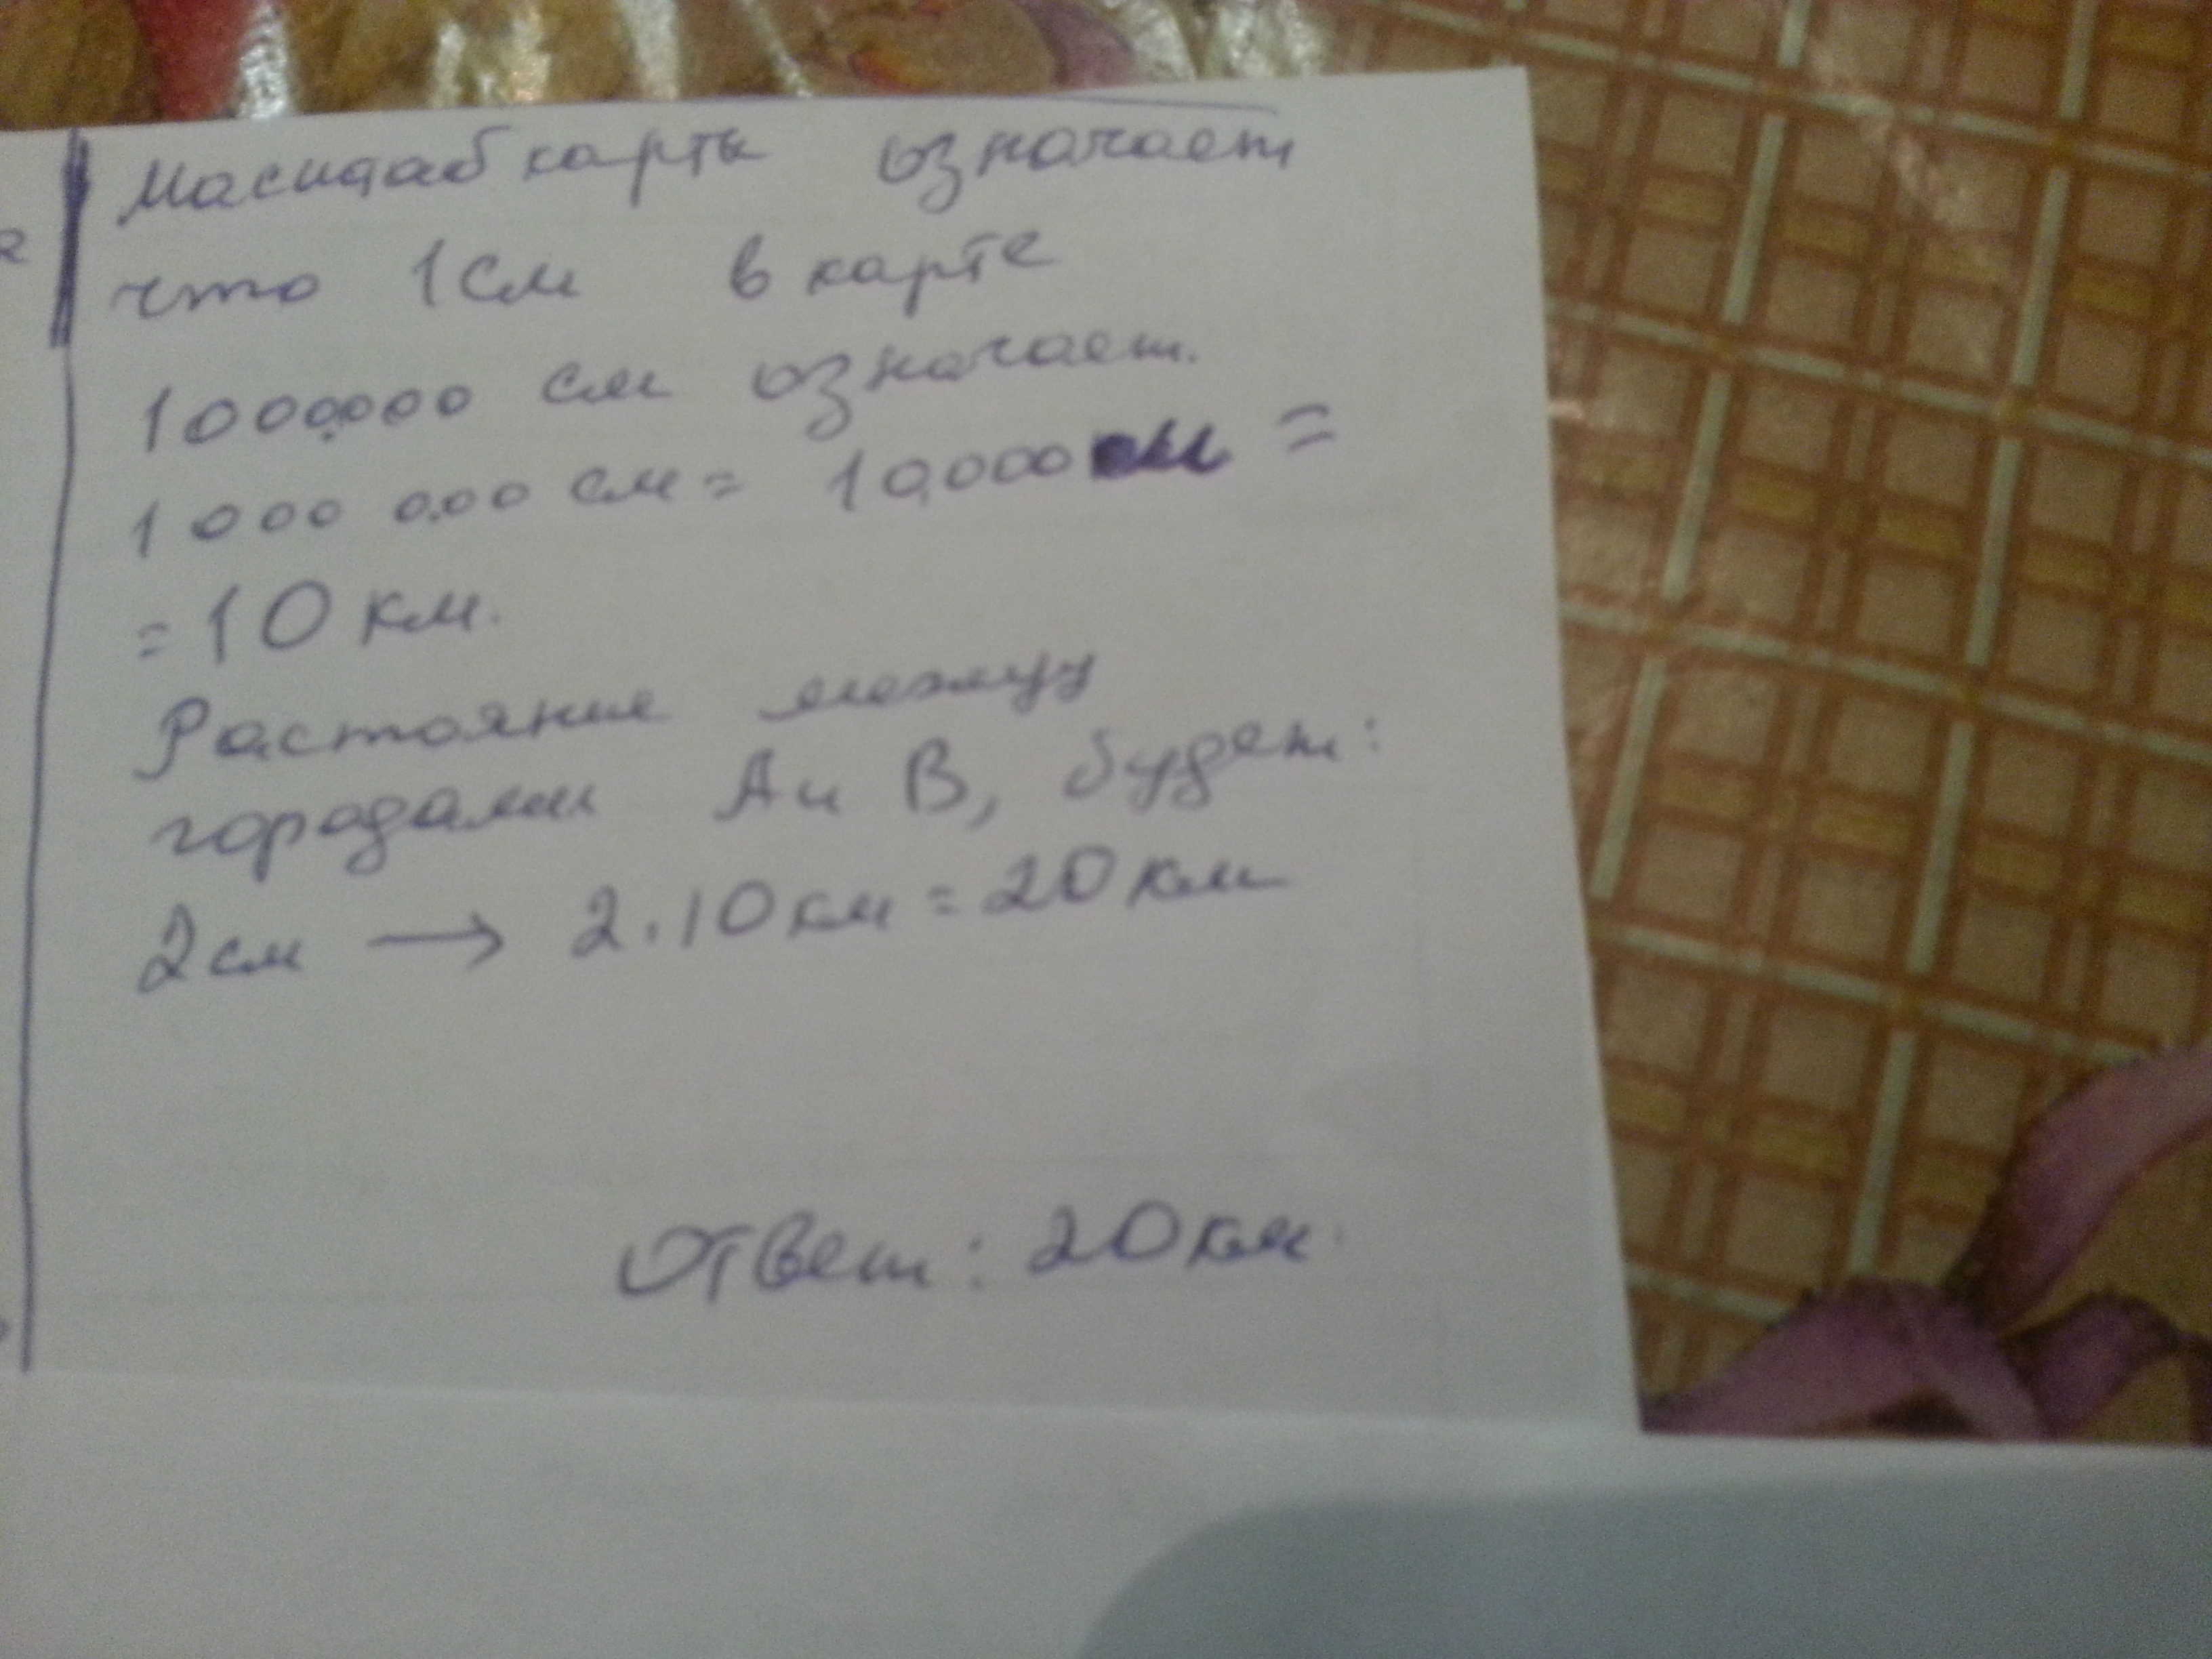 Масштаб карты означает
что 1см в карте
1000000 см означает.
1000 000 см = 10,000 м =
= 10 км.
Растояние между
городами А и В, будет:
2см → 2 . 10 км = 20 км
Ответ: 20 км.